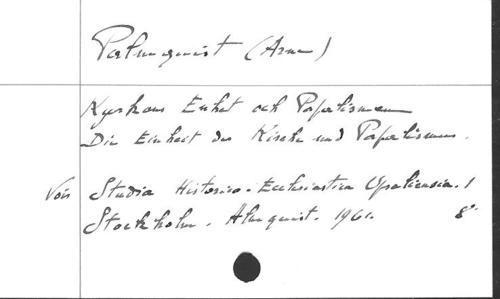 Palmquist (Arne)
Kyrkans Enhet och Papalismen
Die Einheit der Kirche und Papalismus.
Vois Studia Historico-Ecclesiastica Upsaliensia. 1
Stockholm. Almquist. 1961. 8°